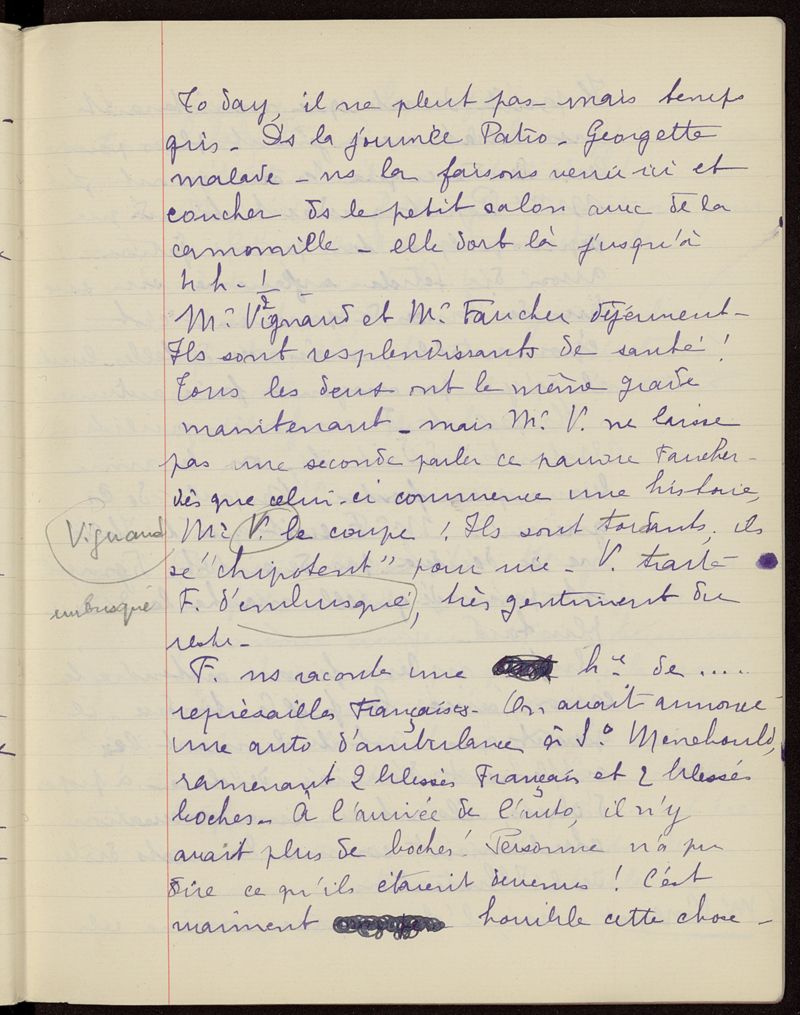 To day, il ne pleut pas - mais temps
gris - Ds la journée Patro - Georgette
malade - ns la faisons venir ici et
coucher ds le petit salon avec de la
camomille - elle dort là jusqu'à
4h - 1/2
Mr Vignaud et Mr Faucher déjeunent -
Ils sont resplendissants de santé !
Tous les deux ont le même grade
maintenant - mais Mr V. ne laisse
pas une seconde parler ce pauvre Faucher -
dès que celui-ci commence une histoire,
Vignaud
Mr V. le coupe ! Ils sont tordants, ils
se "chipotent" pour rire - V. traite
embusqué
F. d'embusqué, très gentiment du
reste -
F. ns raconte une hre de ....
représailles Françaises - On avait annoncé
une auto d'ambulance à Ste Menehould,
ramenant 2 blessés Français et 2 blessés
boches - À l'arrivée de l'auto, il n'y
avait plus de boches ! Personne n'a pu
dire ce qu'ils étaient devenus ! C'est
vraiment horrible cette chose -